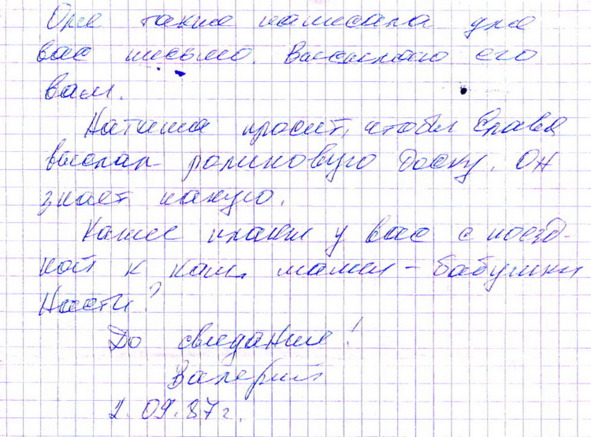 Она также написала для
вас письмо. Высылаю его
вам.
Наташа просит, чтобы Слава
выслал роликовую доску. Он
знает какую.
Какие планы у вас с поезд-
кой к нам, мамы - бабушки
Насти?
До свидания!
Валерий
2.09.87г.